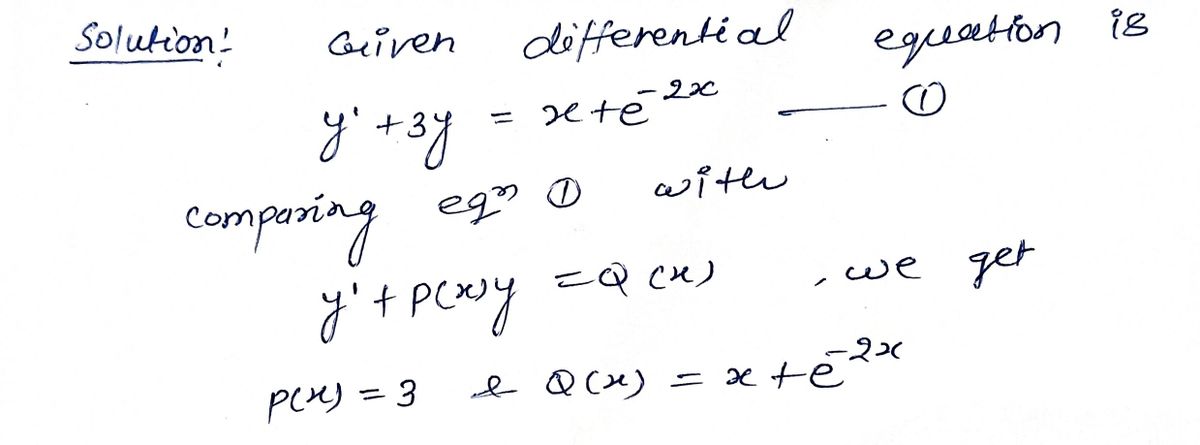 Solution:- Given differential equation is
y' + 3y = x + e^{-2x} —— ①
comparing eqn ① with
y' + P(x)y = Q(x) , we get
P(x) = 3 & Q(x) = x + e^{-2x}